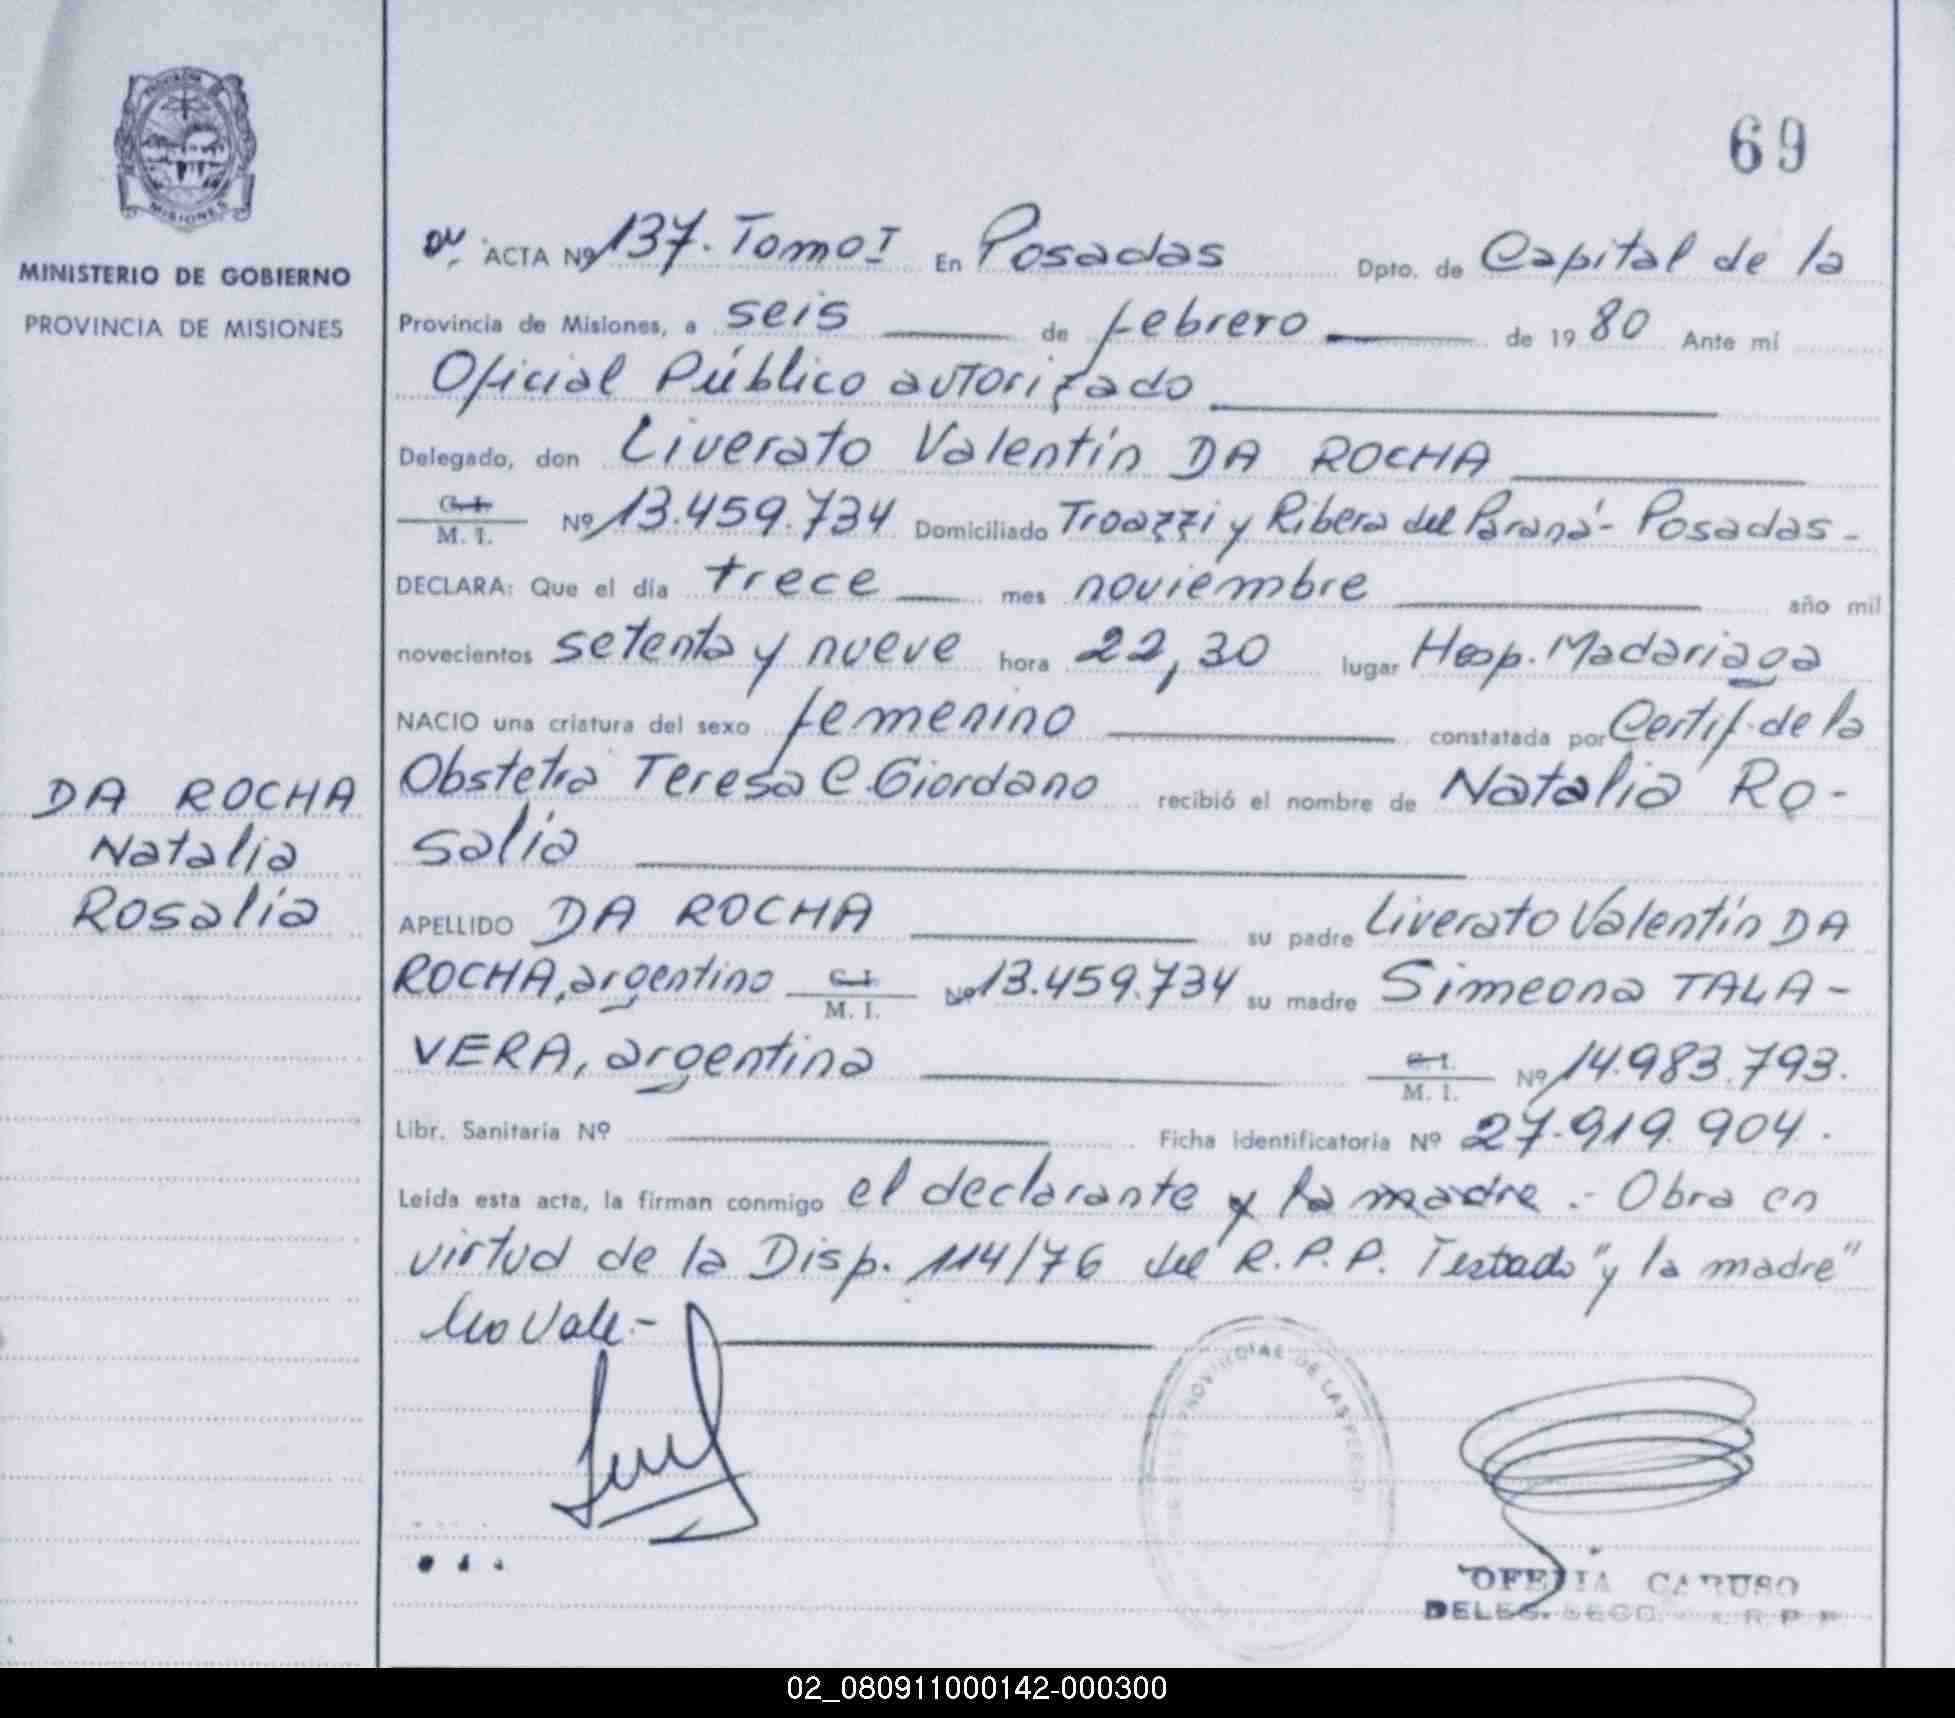 PROVINCIA
MISIONES
MINISTERIO DE GOBIERNO
PROVINCIA DE MISIONES
DA ROCHA
Natalia
Rosalia
69
ACTA Nº 137. Tomo I En Posadas Dpto. de Capital de la
Provincia de Misiones, a seis de febrero de 19 80 Ante mí
Oficial Público autorizado
Delegado, don Liverato Valentín DA ROCHA
C. I.
M. I. Nº 13.459.734 Domiciliado Troazzi y Ribera del Paraná - Posadas -
DECLARA: Que el día trece mes noviembre año mil
novecientos setenta y nueve hora 22,30 lugar Hosp. Madariaga
NACIO una criatura del sexo femenino constatada por Certif. de la
Obstetra Teresa C. Giordano recibió el nombre de Natalia Ro-
salia
APELLIDO DA ROCHA su padre Liverato Valentín DA
ROCHA, argentino C. I. M. I. Nº 13.459.734 su madre Simeona TALA-
VERA, argentina C. I. M. I. Nº 14.983.793.
Libr. Sanitaria Nº Ficha identificatoria Nº 27.919.904.
Leída esta acta, la firman conmigo el declarante y la madre.- Obra en
virtud de la Disp. 114/76 del R.P.P. Testado "y la madre"
No Vale.-
PROVINCIAL DE LAS PERSO
OFELIA CARUSO
DELEG. SECC. R.P.P.
02_080911000142-000300